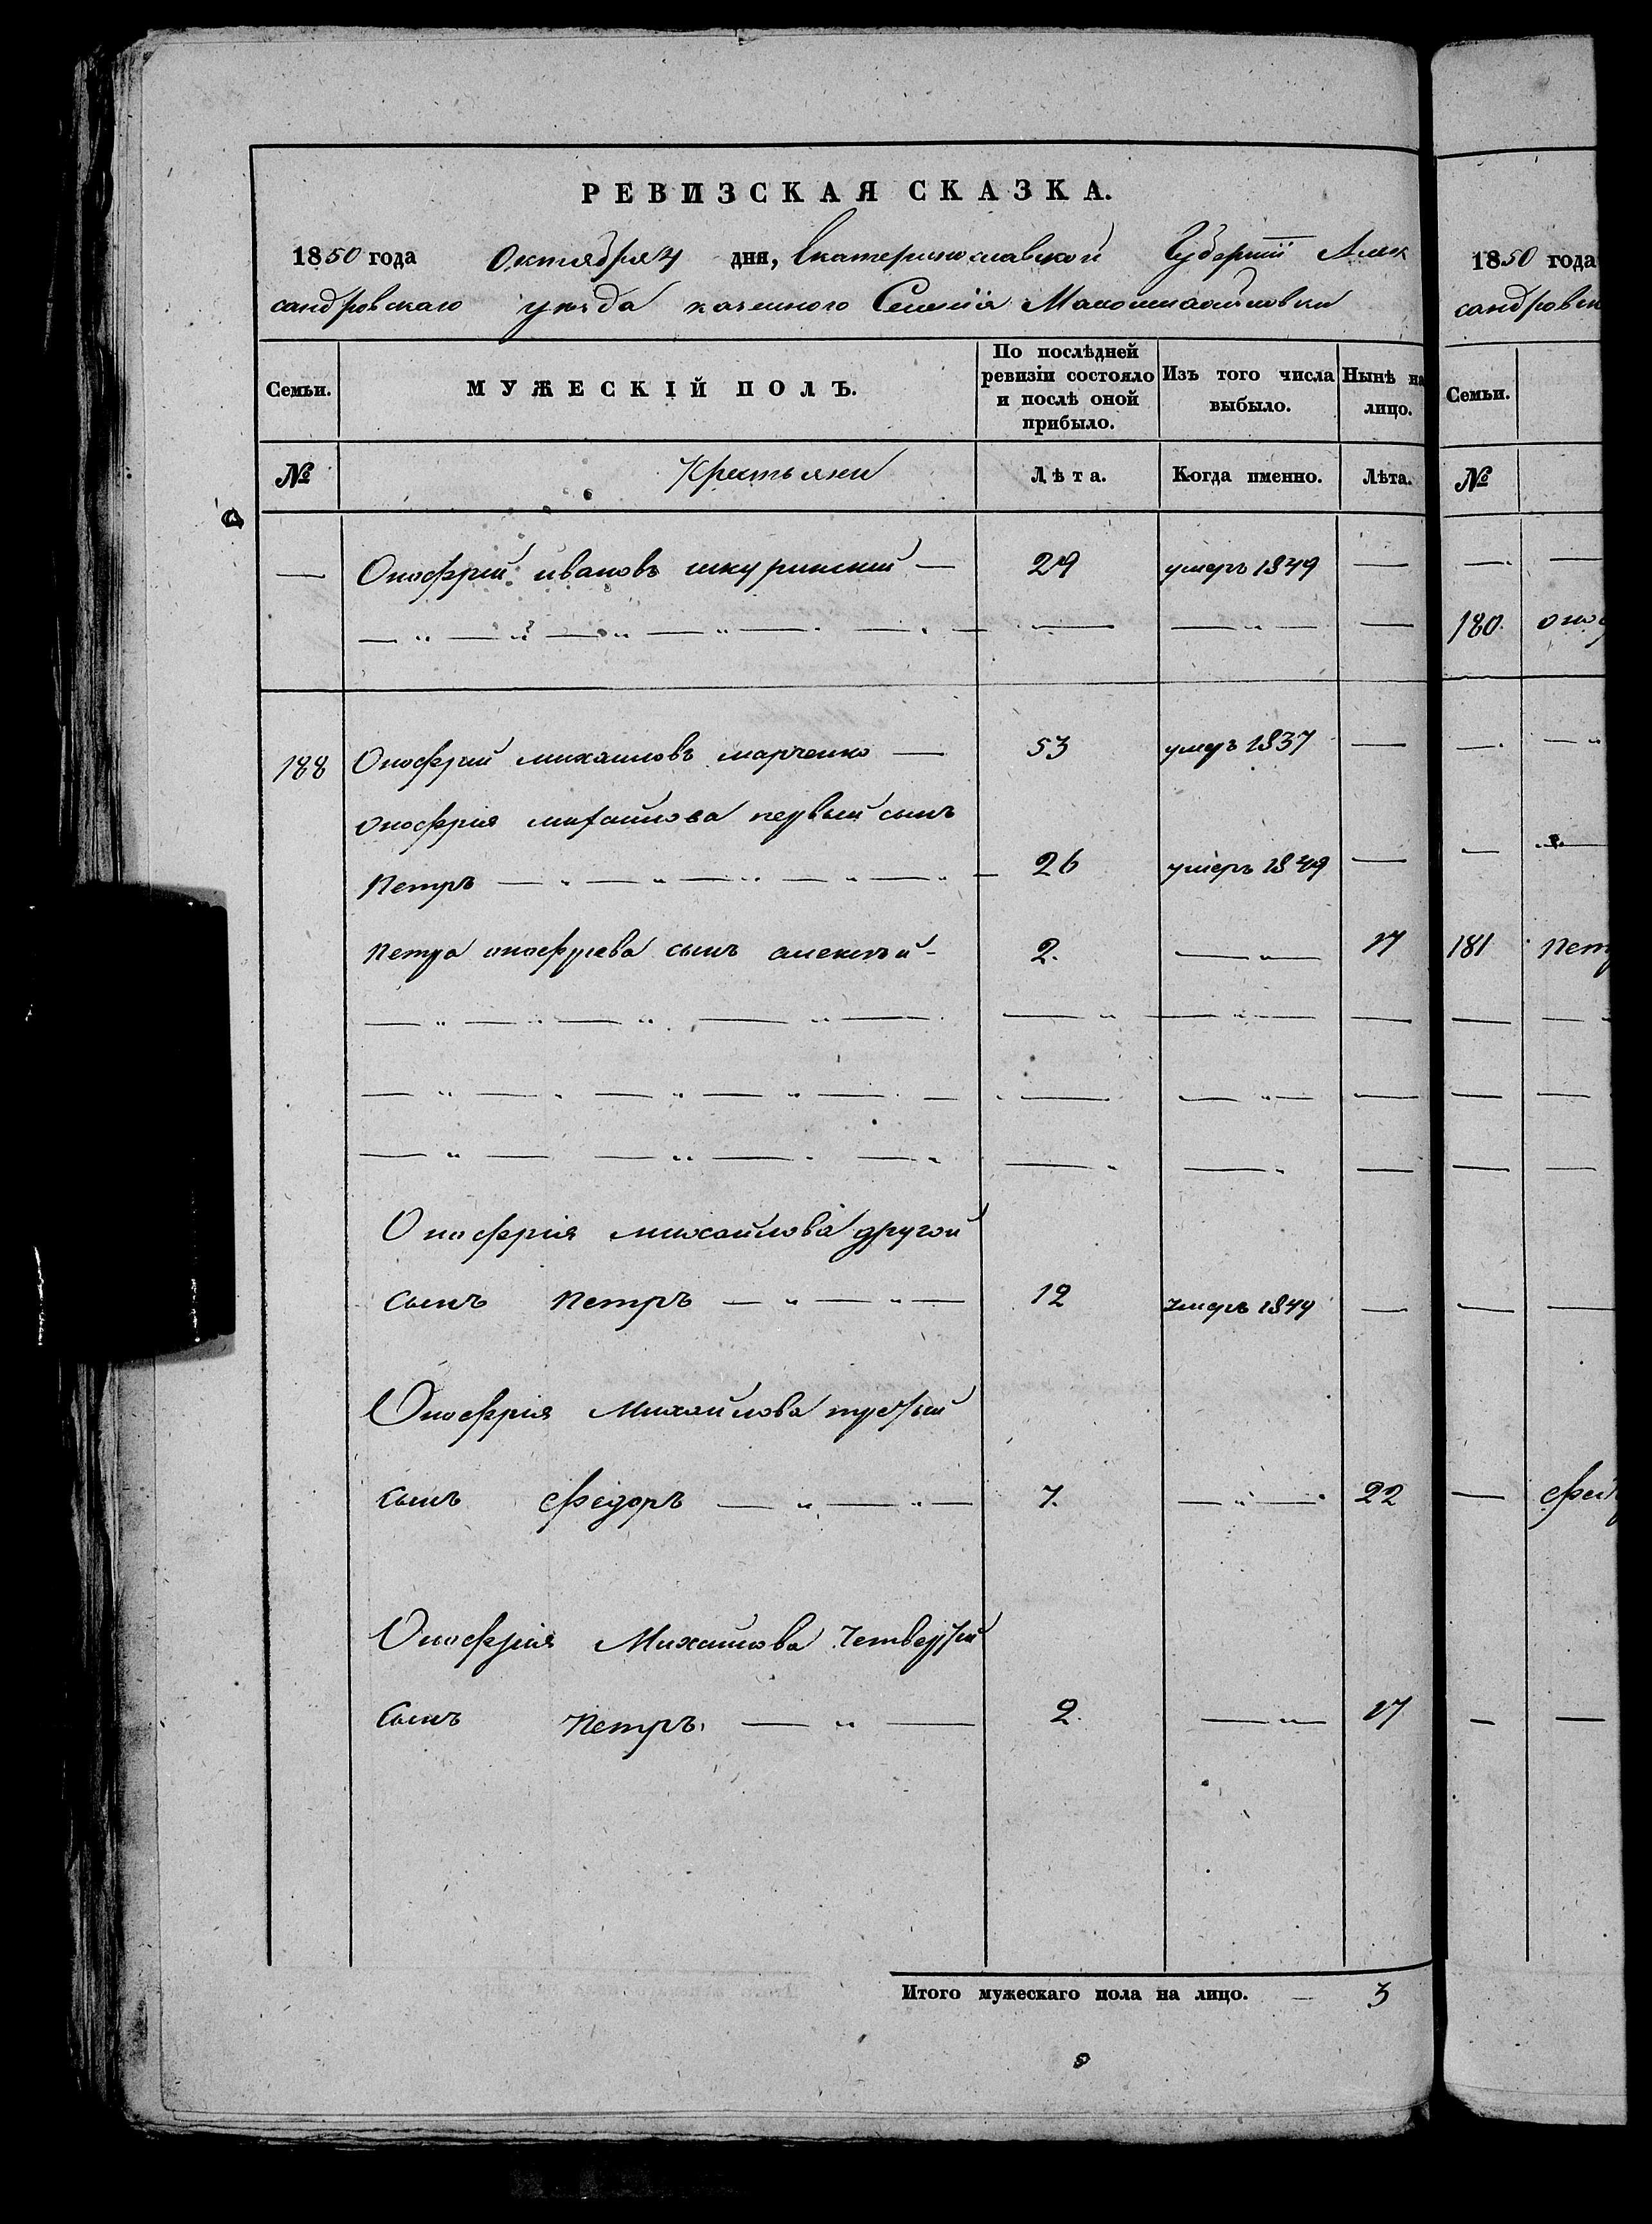 РЕВИЗСКАЯ СКАЗКА.
1850 года Октября 4 дня, Екатеринославской Губернiи Алек
сандровскаго уѣзда казенного Селенiя Маломихайловки
Семьи. МУЖЕСКIЙ ПОЛЪ. По послѣдней ревизiи состояло и послѣ оной прибыло. Изъ того числа выбыло. Нынѣ на лицо.
№ Крестьяни Лѣта. Когда именно. Лѣта.
— Онофрий ивановъ шкуринский — 29 умеръ 1849 —
188 Онофрий михаиловъ марченко — 53 умеръ 1837 —
Онофрия михайлова первый сынъ
Петръ — 26 умеръ 1849 —
Петра онофриева сынъ алексѣй - 2. — 17
Онофрiя михайлова другой
сынъ Петръ — 12 умеръ 1849 —
Онофрiя Михайлова третьий
сынъ Федоръ — 7. — 22
Онофрiя Михаилова четвертий
сынъ Петръ. — 2. — 17
Итого мужескаго пола на лицо. — 3
1850 года
сандровск
Семьи.
№
180. оно
181 Пет
Фед